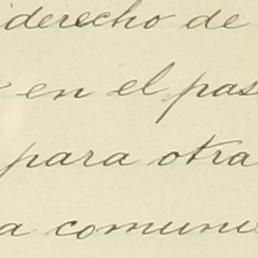 derecho de
en el pas
para otra
a comuni